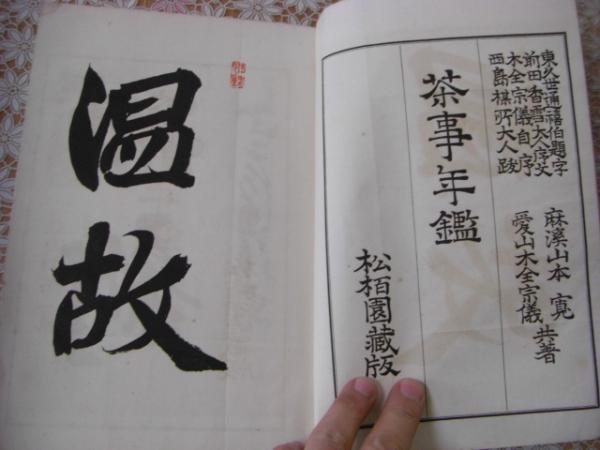 東久世通禧伯題字
前田香雪大人序文
木全宗儀自序
西島樵所大人跋
麻溪山本寛
愛山木全宗儀
共著
茶事年鑑
松栢園藏版
温故